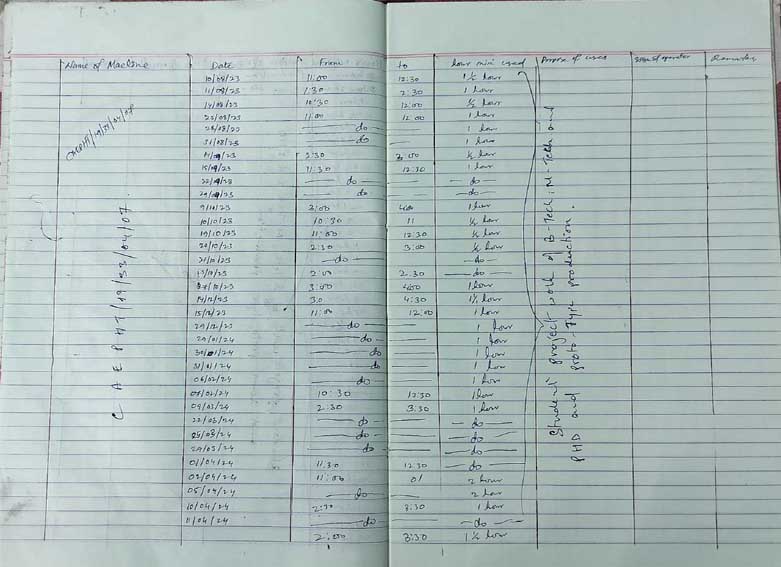 Name of Machine Date From to hour mini used Purpose of uses Sign of operator Remarks
10/08/23 11:00 12:30 1½ hour
11/08/23 1:30 2:30 1 hour
14/08/23 10:30 12:00 ½ hour
22/08/23 11:00 12:00 1 hour
28/08/23 — do — 1 hour
31/08/23 — do — 1 hour
2:30 3:00 ½ hour
11:30 12:30 1 hour
— do — — do —
— do — — do —
9/10/23 3:00 4:00 1 hour
10/10/23 10:30 11 ½ hour
19/10/23 11:00 12:30 ½ hour
20/10/23 2:30 3:00 ½ hour
21/10/23 — do — — do —
2:00 2:30 — do —
3:00 4:00 1 hour
14/12/23 30 4:30 1½ hour
15/12/23 11:00 12:00 1 hour
29/12/23 — do — 1 hour
29/01/24 — do — 1 hour
30/01/24 — do — 1 hour
31/01/24 — do — 1 hour
06/02/24 — do — 1 hour
10:30 12:30 1 hour
09/03/24 2:30 3:30 1 hour
22/03/24 — do — — do —
25/03/24 — do — — do —
29/03/24 — do — — do —
01/04/24 11:30 12:30 — do —
02/04/24 11:00 01 2 hour
05/04/24 — do — 2 hour
10/04/24 2:30 3:30 1 hour
11/04/24 — do — — do —
2:00 3:30 1½ hour
CAEPHT/19/53/04/07.
Student project work of B-Tech, M-Tech and
PHD and proto-Type production.